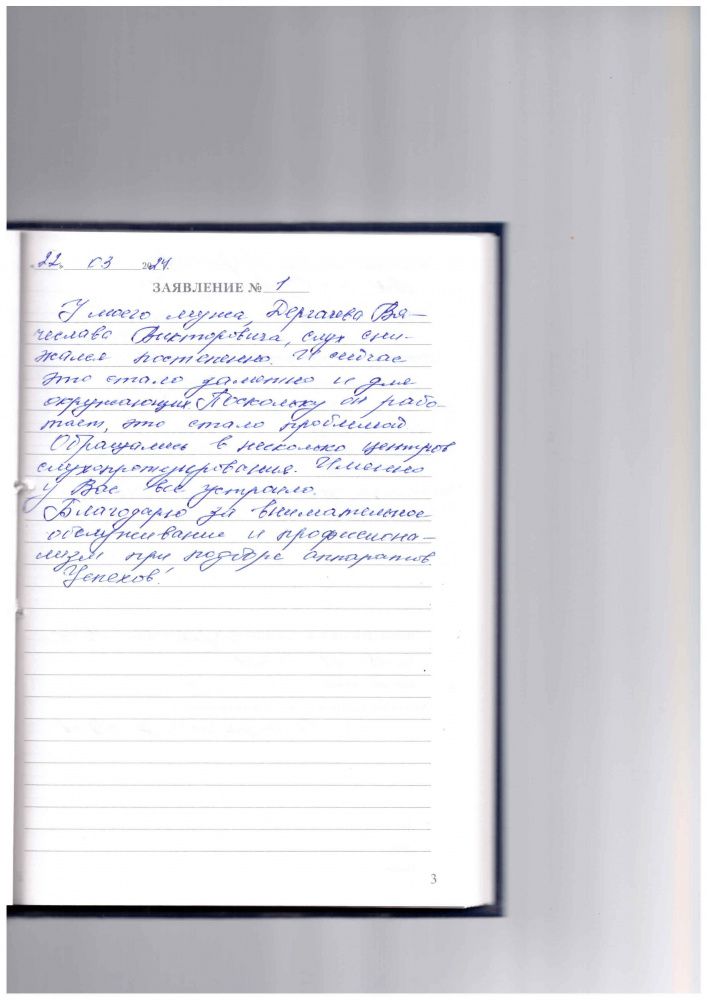 „22“ 03 2024г.
ЗАЯВЛЕНИЕ № 1
У моего мужа, Дергачева Вя-
чеслава Викторовича, слух сни-
жался постепенно. И сейчас
это стало заметно и для
окружающих. Поскольку он рабо-
тает, это стало проблемой
Обращались в несколько центров
слухопротезирования. Именно
у Вас все устроило.
Благодарю за внимательное
обслуживание и профессиона-
лизм при подборе аппаратов.
Успехов!
3